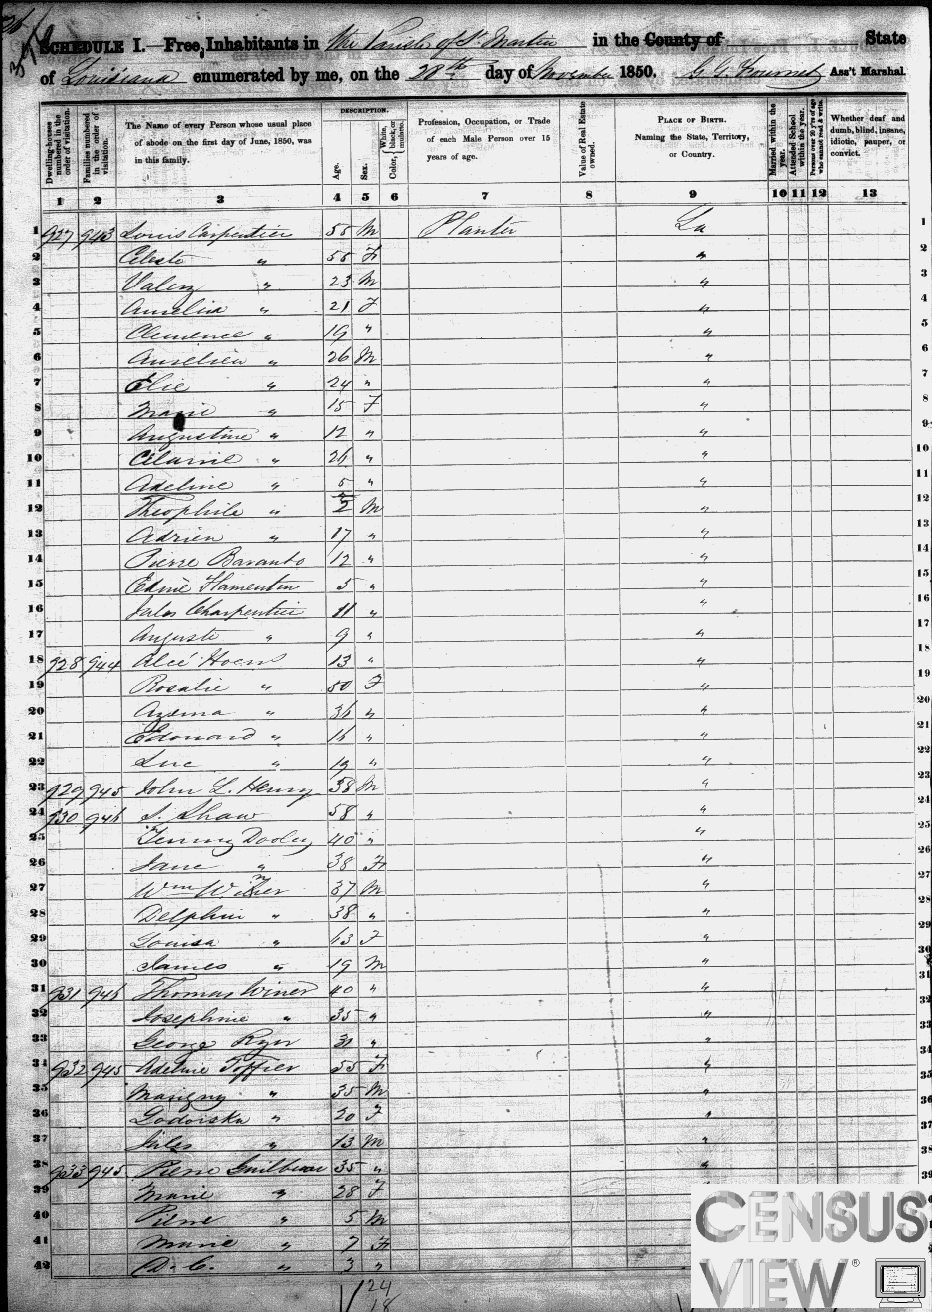 SCHEDULE I.—Free Inhabitants in the Parish of St Martin in the County of State
of Louisiana enumerated by me, on the 28th day of November 1850. Ass't Marshal.
DESCRIPTION.
Dwelling-houses numbered in the order of visitation.
Families numbered in the order of visitation.
The Name of every Person whose usual place of abode on the first day of June, 1850, was in this family.
Age.
Sex.
Color, White, black, or mulatto.
Profession, Occupation, or Trade of each Male Person over 15 years of age.
Value of Real Estate owned.
PLACE OF BIRTH. Naming the State, Territory, or Country.
Married within the year.
Attended School within the year.
Persons over 20 y'rs of age who cannot read & write.
Whether deaf and dumb, blind, insane, idiotic, pauper, or convict.
1 2 3 4 5 6 7 8 9 10 11 12 13
1 927 943 Louis Carpentier 55 M Planter La 1
2 Celeste " 55 F " 2
3 Valery " 23 M " 3
4 Aurelia " 21 F " 4
5 Clemence " 19 " " 5
6 Aurelien " 26 M " 6
7 Elie " 24 " " 7
8 Marie " 15 F " 8
9 Augustine " 12 " " 9
10 " 24 " " 10
11 Adeline " 5 " " 11
12 Theophile " 2 M " 12
13 Adrien " 17 " " 13
14 Pierre 12 " " 14
15 5 " " 15
16 Jules Charpentier 11 " " 16
17 Auguste " 9 " " 17
18 928 944 13 " " 18
19 Rosalie " 50 F " 19
20 Azema " 36 " " 20
21 Edouard " 16 " " 21
22 Luc " 19 " " 22
23 929 945 John L. Henry 38 M " 23
24 930 946 S. Shaw 58 " " 24
25 Dooley 40 " " 25
26 Jane " 38 F " 26
27 Wm 37 M " 27
28 Delphin " 38 " " 28
29 Louisa " 13 F " 29
30 James " 19 M " 30
31 931 946 Thomas Winer 40 " " 31
32 Josephine " 35 " " 32
33 George 31 " " 33
34 932 945 Adeline Toffier 55 F " 34
35 Marigny " 35 M " 35
36 Lodoiska " 20 F " 36
37 Jules " 13 M " 37
38 933 945 Pierre Guilbeau 35 " " 38
39 Marie " 28 F 39
40 Pierre " 5 M
41 Marie " 7 F
42 D. C. " 3 "
24
18
CENSUS
VIEW®